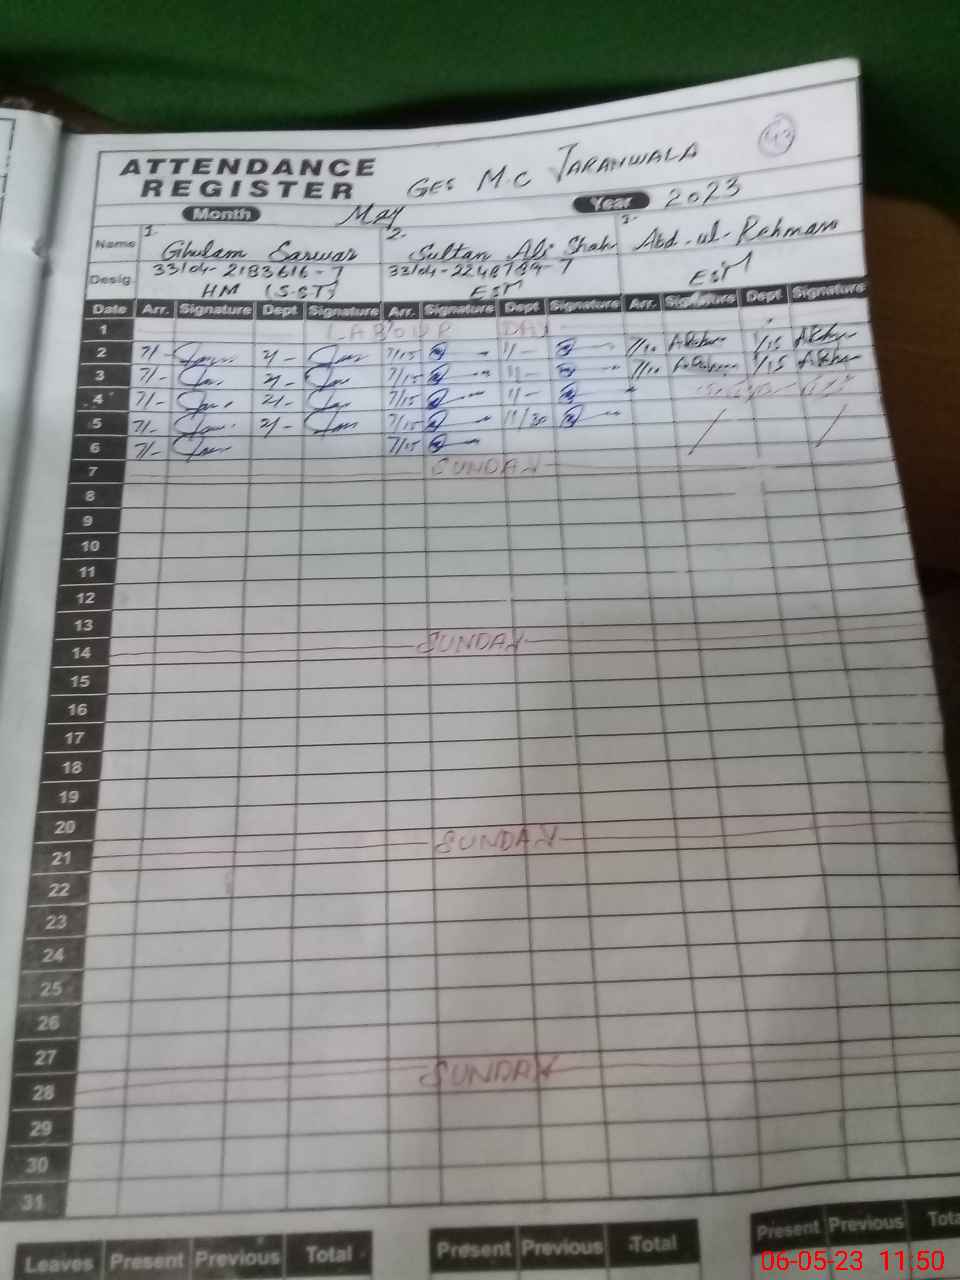 43
ATTENDANCE REGISTER GES M.C JARANWALA
Month May Year 2023
Name 1. Ghulam Sarwar 2. Sultan Ali Shah 3. Abd-ul-Rehman
Desig. 33104-2183616-7 33104-2248789-7 EST
HM (SST) EST
Date Arr. Signature Dept Signature Arr. Signature Dept Signature Arr. Signature Dept Signature
1 LABOUR DAY
2 7/- 2/- 7/15 11/- 7/10 1/15
3 7/- 2/- 7/15 11/- 7/10 1/15
4 7/- 2/- 7/15 11/-
5 7/- 2/- 7/15 11/30
6 7/- 7/15
7 SUNDAY
8
9
10
11
12
13
14 SUNDAY
15
16
17
18
19
20
21 SUNDAY
22
23
24
25
26
27
28 SUNDAY
29
30
31
Leaves Present Previous Total Present Previous Total Present Previous
06-05-23 11:50